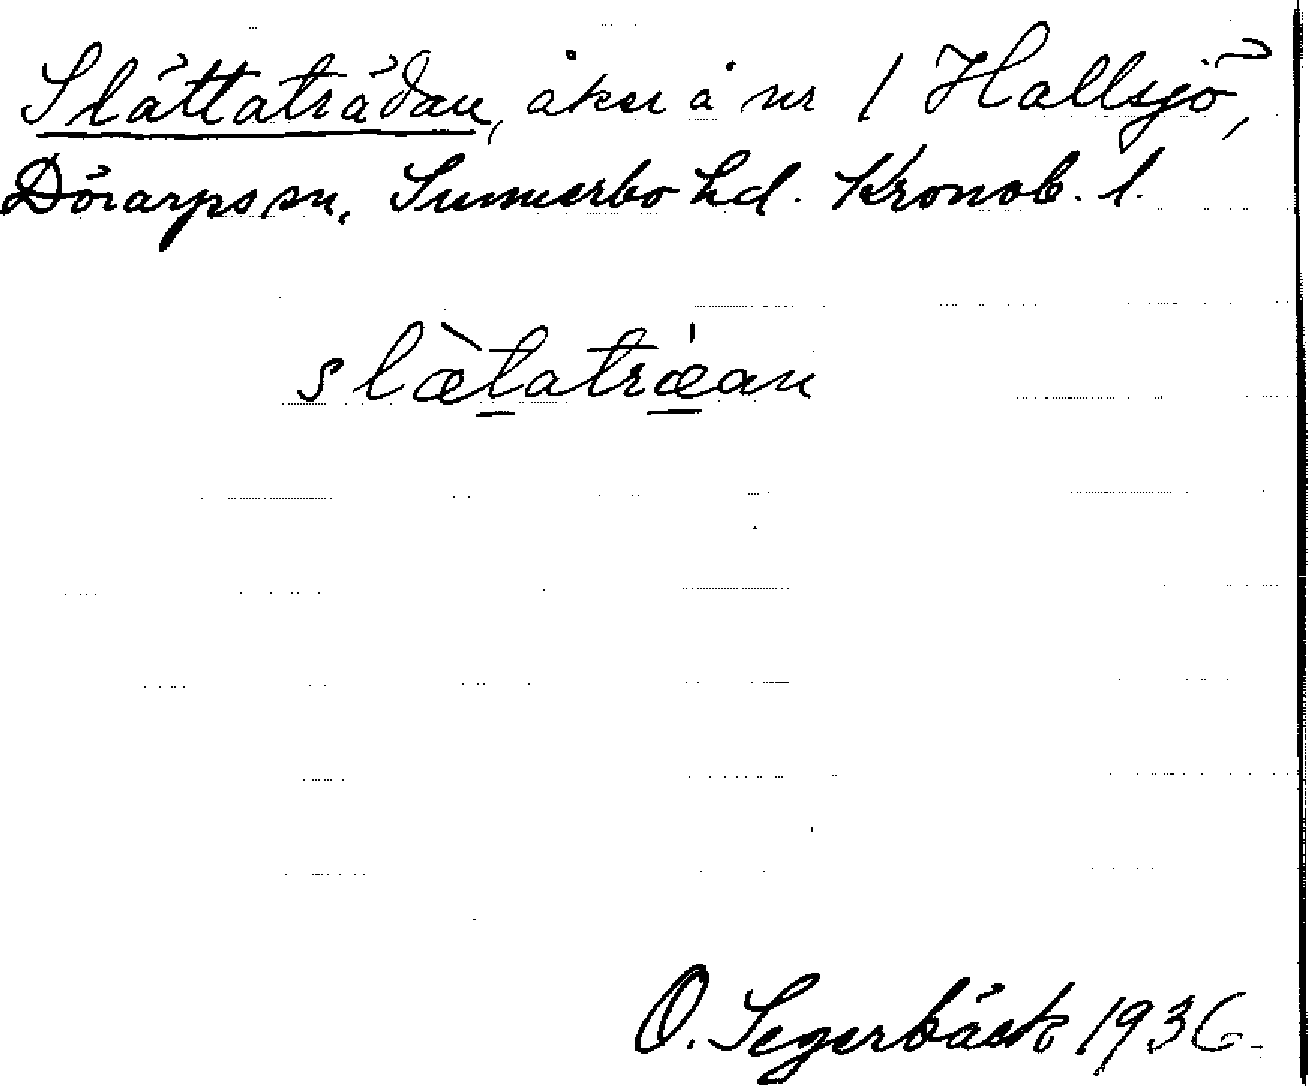 Slättaträdan, åker å nr 1 Hallsjö,
Dörarps sn. Sunnerbo hd. Kronob. l.
slæ̀tatrǽan
O. Segerbäck 1936.